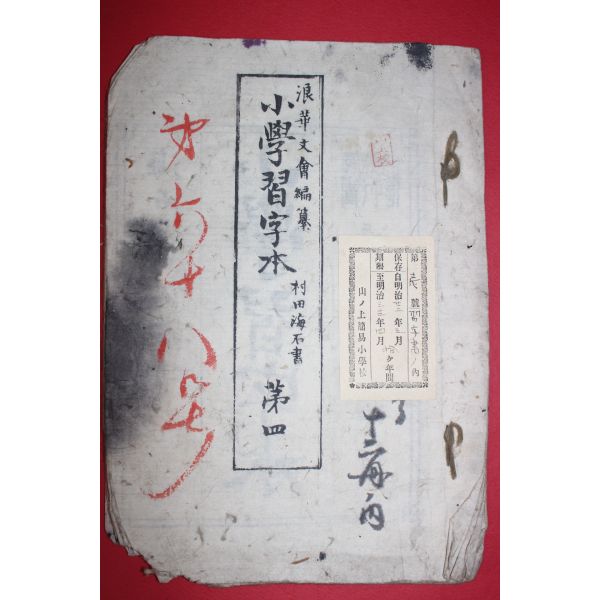 浪華文會編纂
小學習字本
村田海石書
第四
第壱號習字書ノ内
保存自明治廿三年三月
期限至明治三十年四月
ヶ年間
山ノ上簡易小學校
十二冊ノ内
第六十八号